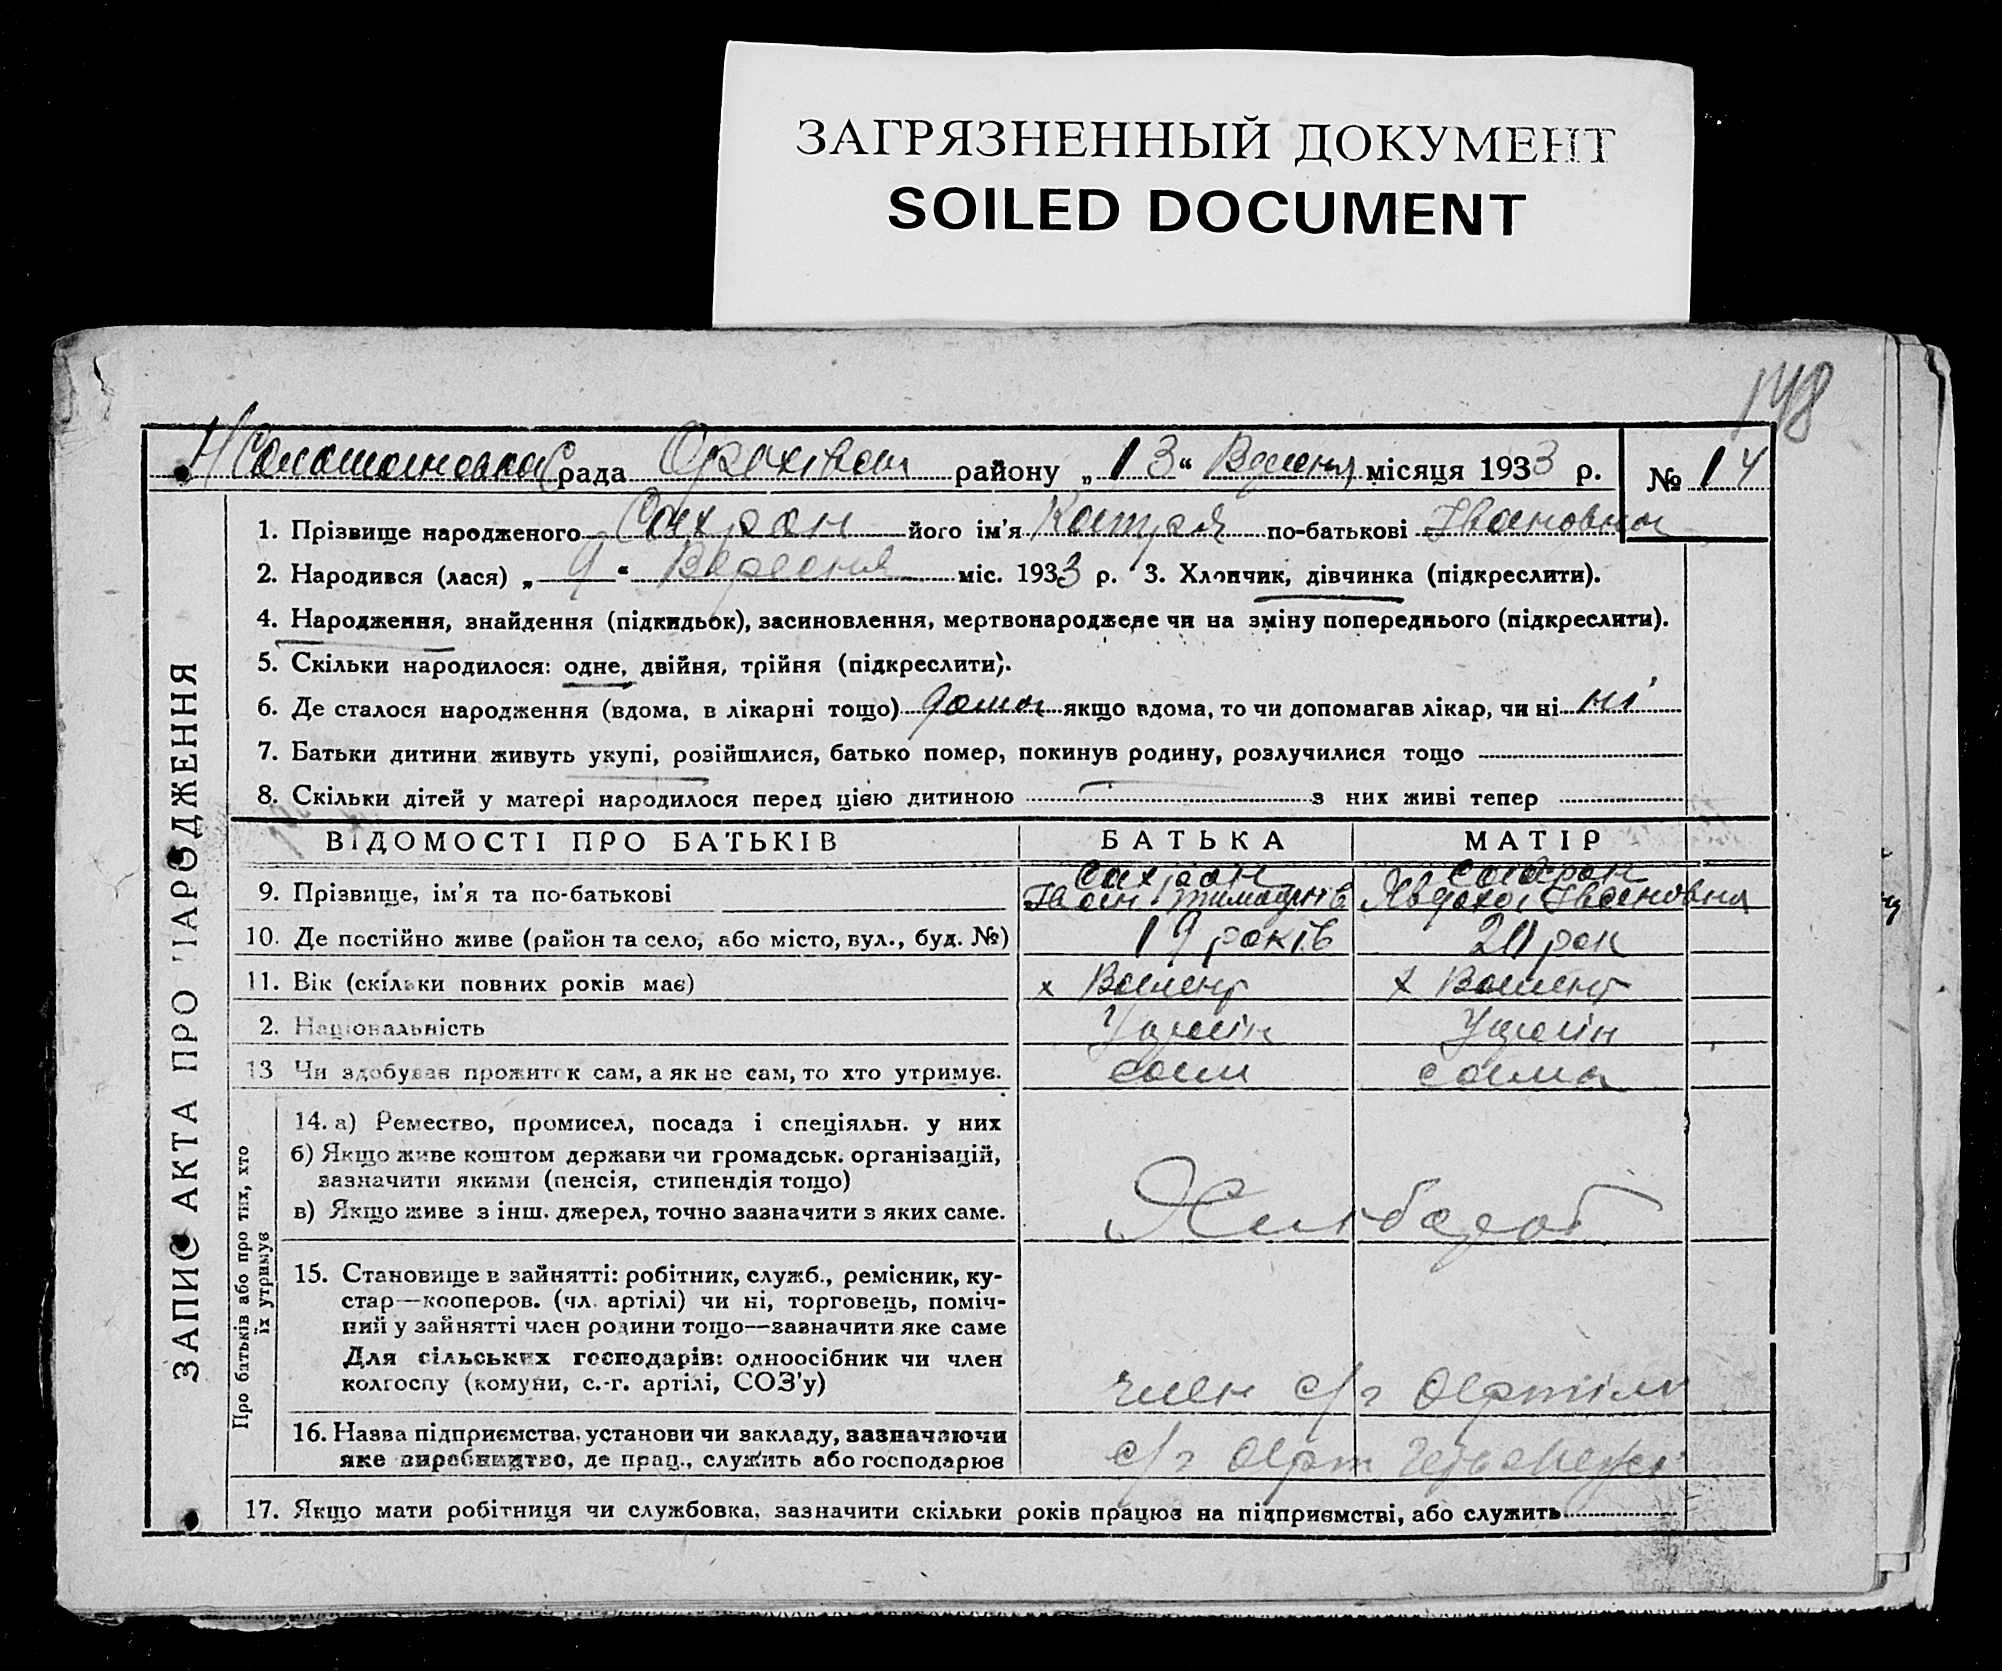 ЗАГРЯЗНЕННЫЙ ДОКУМЕНТ
SOILED DOCUMENT
148
рада района району „13“ місяця 1933 р. № 14
1. Прізвище народженого Сахран його ім'я Катря по-батькові Івановна
2. Народився (лася) „9“ Вересня міс. 1933 р. 3. Хлопчик, дівчинка (підкреслити).
4. Народження, знайдення (підкидьок), засиновлення, мертвонароджене чи на зміну попереднього (підкреслити).
5. Скільки народилося: одне, двійня, трійня (підкреслити).
6. Де сталося народження (вдома, в лікарні тощо) дома якщо вдома, то чи допомагав лікар, чи ні ні
7. Батьки дитини живуть укупі, розійшлися, батько помер, покинув родину, розлучилися тощо
8. Скільки дітей у матері народилося перед цією дитиною з них живі тепер
ВІДОМОСТІ ПРО БАТЬКІВ БАТЬКА МАТІР
Сахран Сахран
9. Прізвище, ім'я та по-батькові Іван Явдоха Івановна
10. Де постійно живе (район та село, або місто, вул., буд. №) 19 років 20 рок
11. Вік (скільки повних років має) х х
2. Національність Украін Украін
13 Чи здобував прожиток сам, а як не сам, то хто утримує. сам сама
14. а) Ремество, промисел, посада і спеціяльн. у них
б) Якщо живе коштом держави чи громадськ. організацій,
зазначити якими (пенсія, стипендія тощо)
в) Якщо живе з інш. джерел, точно зазначити з яких саме. Хлібороб
15. Становище в зайнятті: робітник, служб., ремісник, ку-
стар—кооперов. (чл. артілі) чи ні, торговець, поміч-
ний у зайнятті член родини тощо—зазначити яке саме
Для сільських господарів: одноосібник чи член
колгоспу (комуни, с.-г. артілі, СОЗ'у) член с/г Артіли
16. Назва підприємства, установи чи закладу, зазначаючи
яке виробництво, де прац., служить або господарює с/г Арт
17. Якщо мати робітниця чи службовка, зазначити скільки років працює на підприємстві, або служить
ЗАПИС АКТА ПРО НАРОДЖЕННЯ
Про батьків або про тих, хто
їх утримує